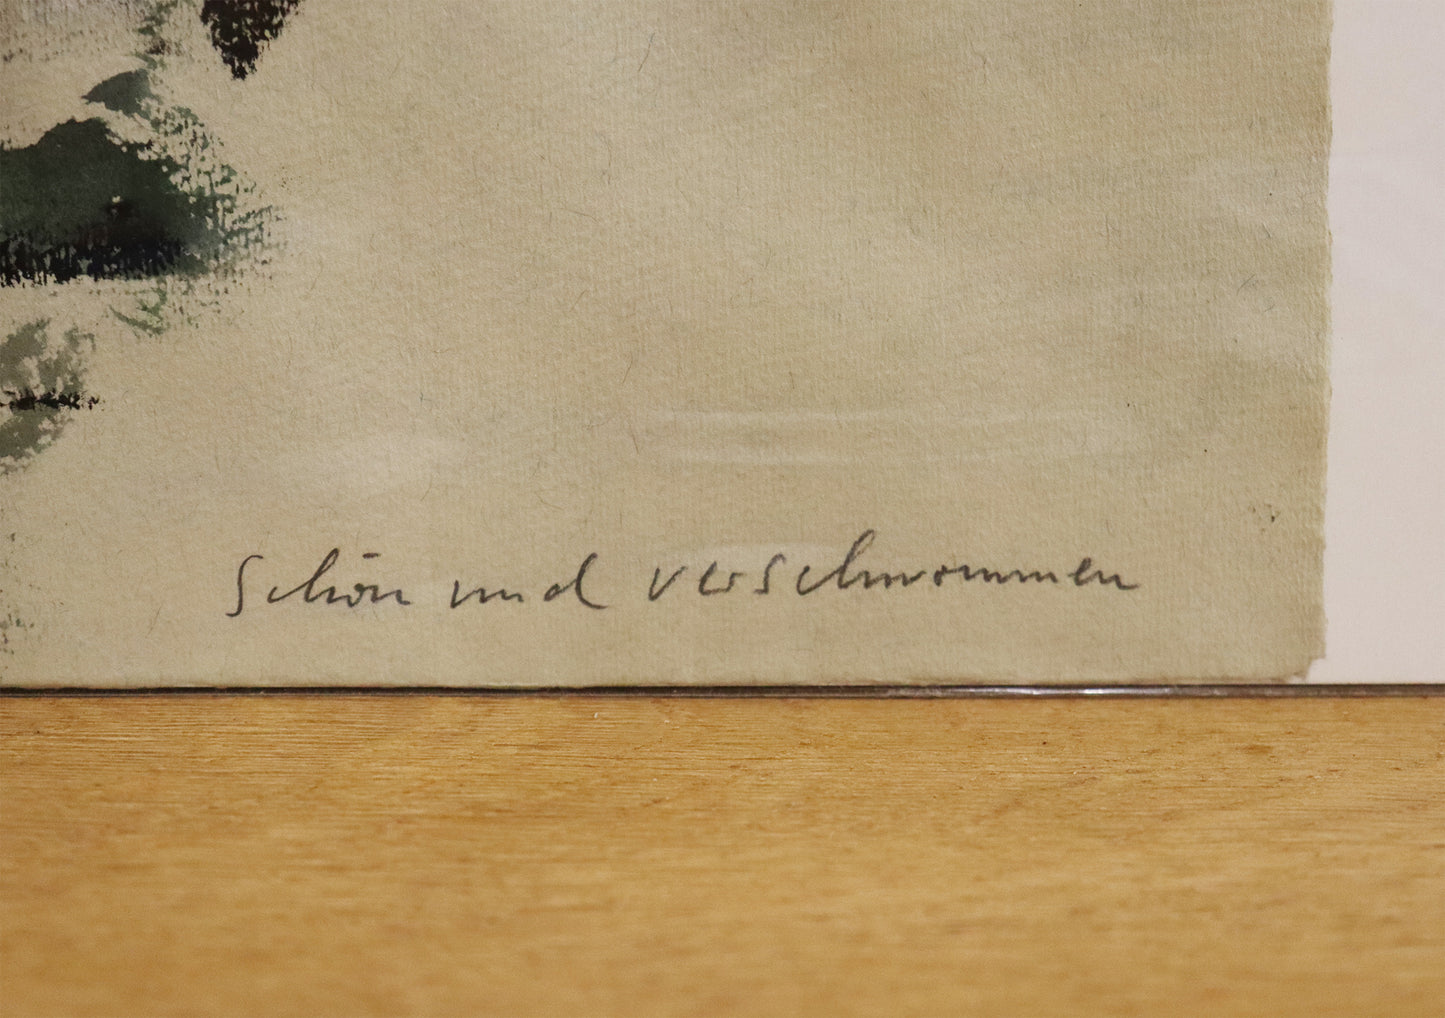 Schön und verschwommen